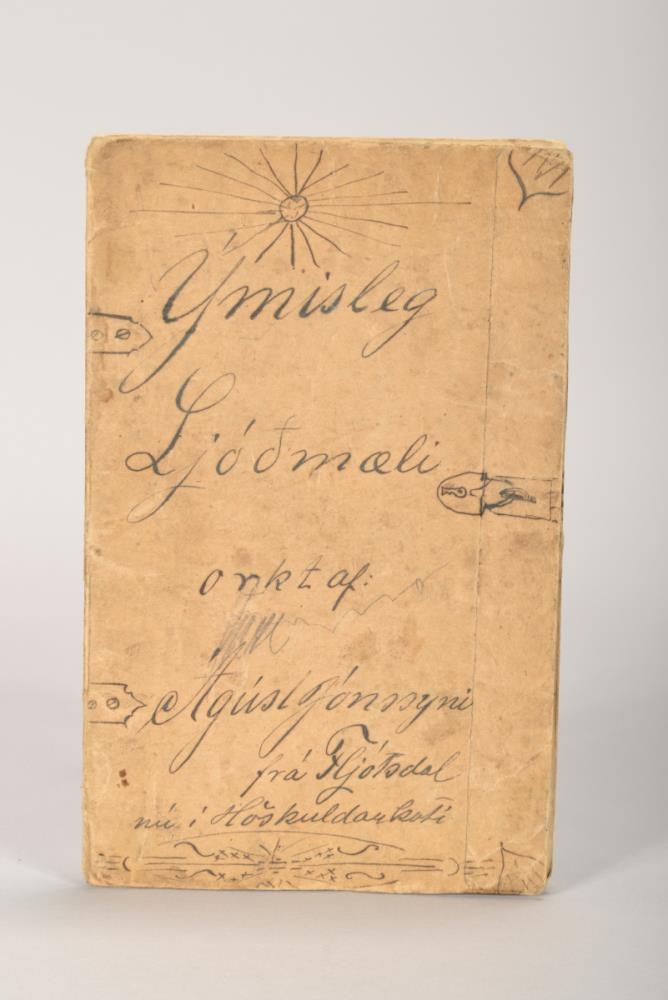 Ýmisleg
Ljóðmæli
orkt af:
Ágúst Jónssyni
frá Fljótsdal
nú í Höskuldarkoti